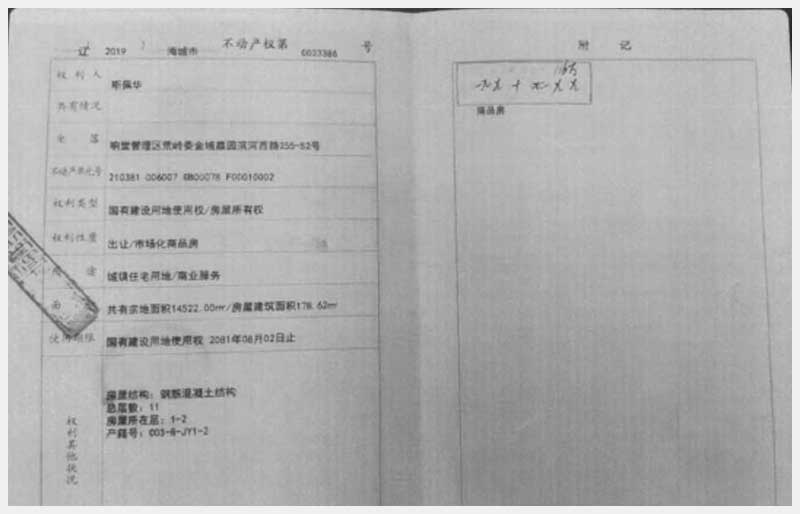 辽 2019 海城市 不动产权第 0033386 号
权利人 斯佩华
共有情况
坐落 响堂管理区荒岭委金域嘉园滨河西路355-S2号
不动产单元号 210381 006007 GB00078 F00010002
权利类型 国有建设用地使用权/房屋所有权
权利性质 出让/市场化商品房
途 城镇住宅用地/商业服务
面 共有宗地面积14522.00㎡/房屋建筑面积178.62㎡
使用期限 国有建设用地使用权 2081年08月02日止
权利其他状况
房屋结构：钢筋混凝土结构
总层数：11
房屋所在层：1-2
产籍号：003-8-JY1-2
附记
商品房